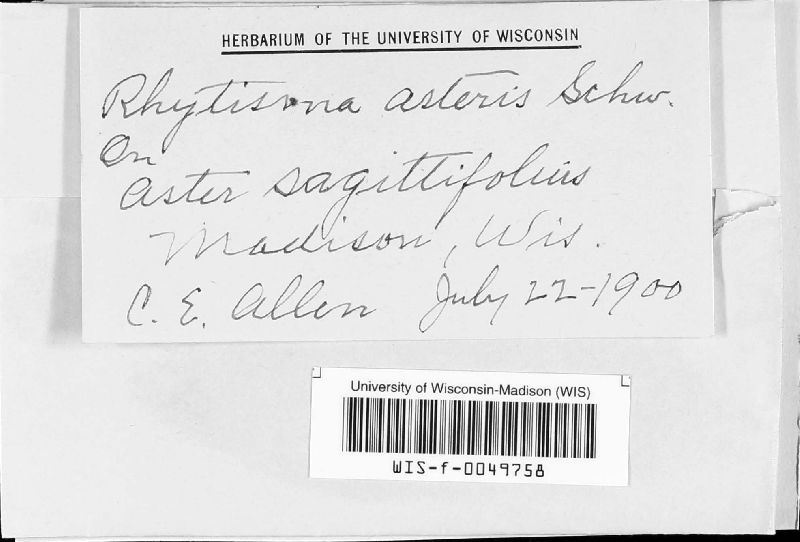 HERBARIUM OF THE UNIVERSITY OF WISCONSIN
Rhytisma asteris Schw.
On
Aster sagittifolius
Madison, Wis.
C. E. Allen July 22-1900
University of Wisconsin-Madison (WIS)
WIS-f-0049758